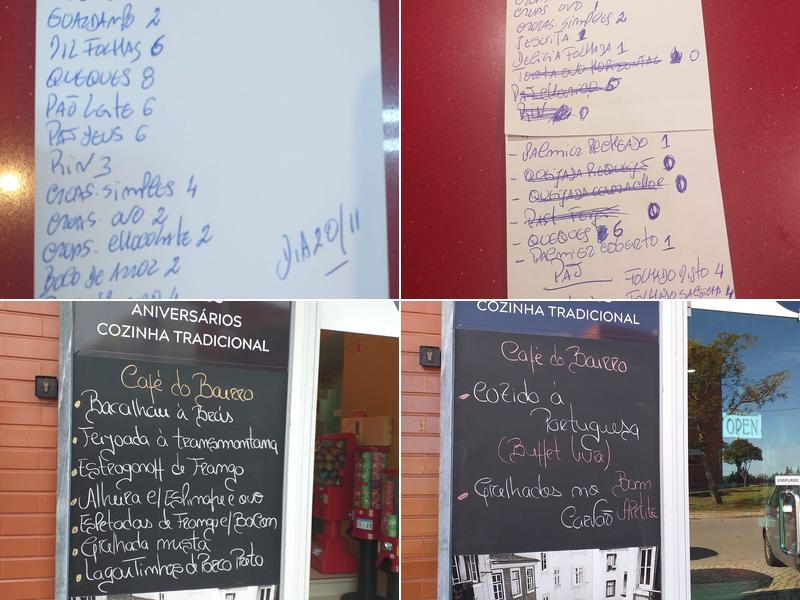 GUARDANAPO 2
MIL FOLHAS 6
QUEQUES 8
PAÕ LEITE 6
PAS DEUS 6
RIN 3
CROAS. SIMPLES 4
CROAS. OVO 2
CROAS. CHOCOLATE 2
BOLO DE ARROZ 2
DIA 20/11
CROAS. OVO 1
CROAS. SIMPLES 2
JESUITA 1
DELICIA FOLHADA 1
0
RIN 0
- PALMIER RECHEADO 1
0
0
0
- QUEQUES 6
- PALMIER COBERTO 1
FOLHADO MISTO 4
FOLHADO SALSICHA 4
ANIVERSÁRIOS
COZINHA TRADICIONAL
Café do Bairro
Bacalhau à Brás
Feijoada à transmontana
Estrogonoff de Frango
Alheira c/ Esparregado e ovo
Espetadas de Frango c/ Bacon
Grelhada mista
Lagartinhos de Porco Preto
COZINHA TRADICIONAL
Café do Bairro
Cozido à
Portuguesa
(Buffet livre)
Grelhados no
Carvão
Bom
Apetite
OPEN
EMPURRE